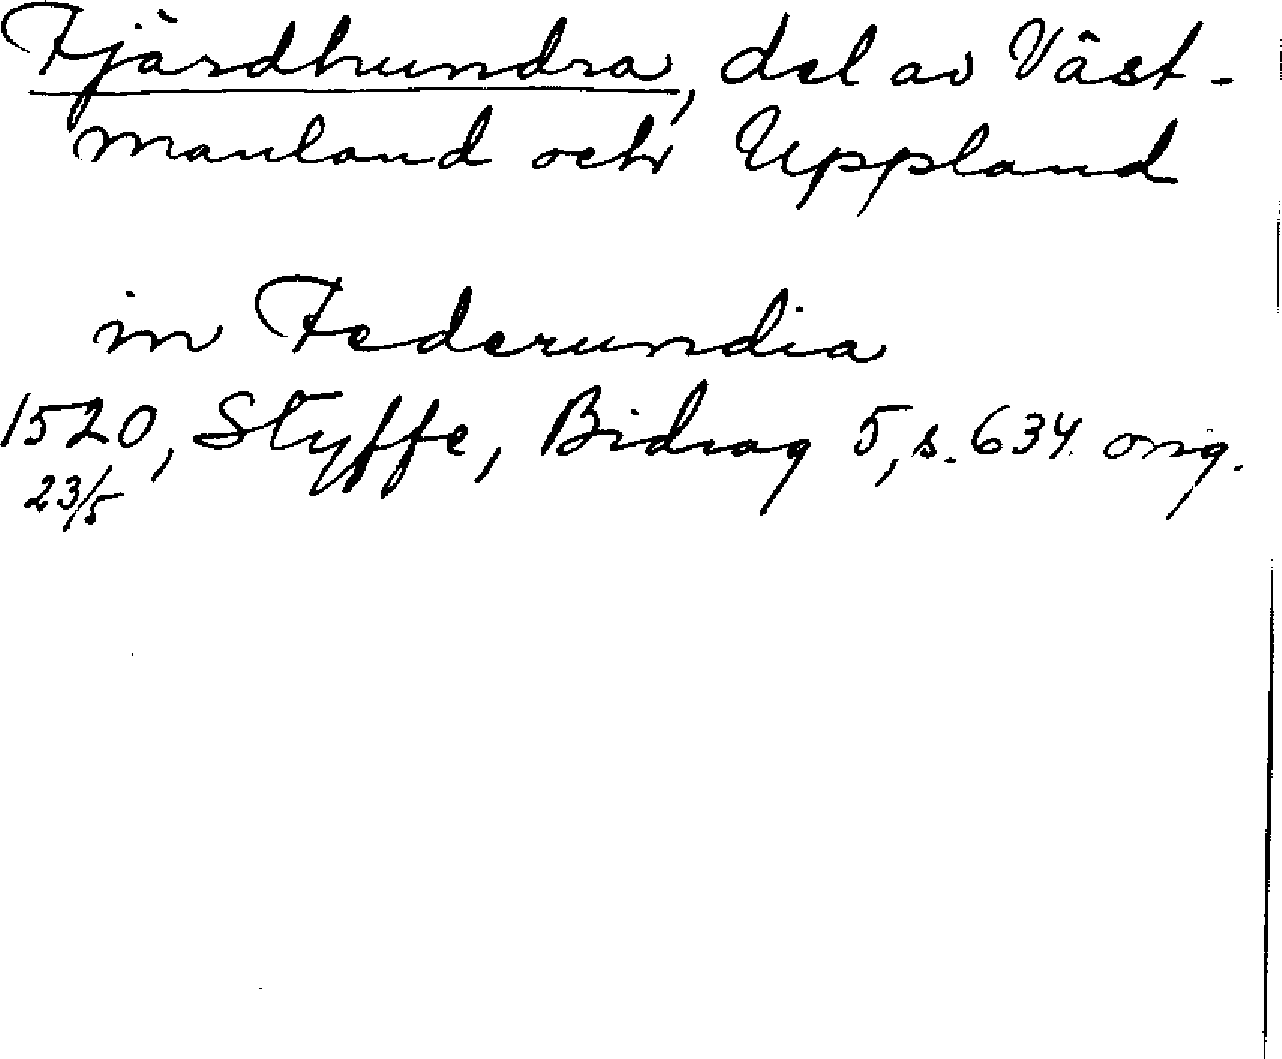 Fjärdhundra, del av Väst-
manland och Uppland
in Federundia
1520, Styffe, Bidrag 5, s. 634. orig.
23/5